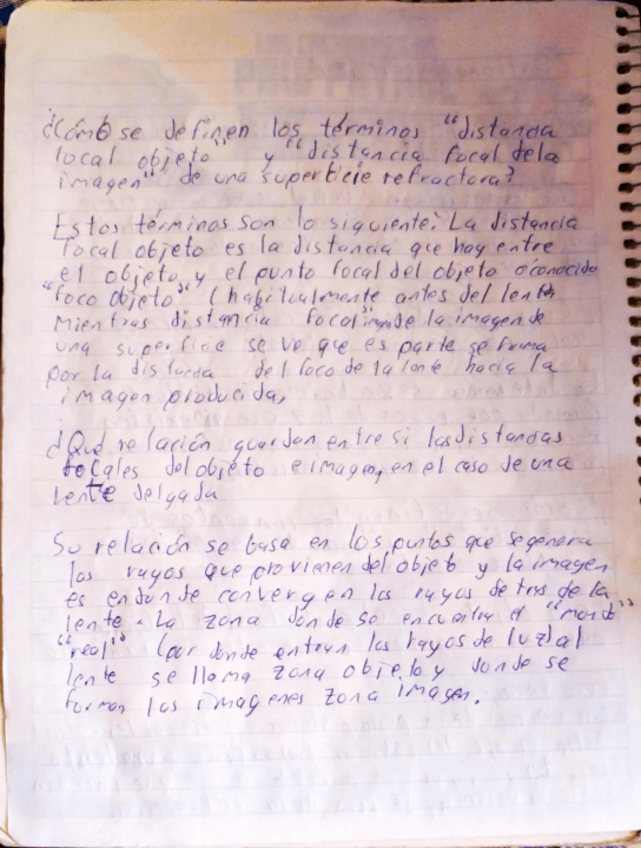 ¿Cómo se definen los términos "distancia
focal objeto" y "distancia focal dela
imagen" de una superficie refractora?
Estos términos son lo siguiente: La distancia
focal objeto es la distancia que hay entre
el objeto y el punto focal del objeto o conocido
"foco objeto" (habitualmente antes del lente
mientras distancia focal de la imagen de
una superficie se ve que es parte se forma
por la distancia del foco de la lente hacia la
imagen producida,
¿Qué relación guardan entre si las distancias
focales del objeto e imagen, en el caso de una
lente delgada
Su relación se basa en los puntos que se genera
los rayos que provienen del objeto y la imagen
es en donde convergen los rayos detras de la
lente. La zona donde se encuentra el "mundo"
"real" (por donde entran los rayos de luz al
lente se llama zona objeto y donde se
forman las imagenes zona imagen.